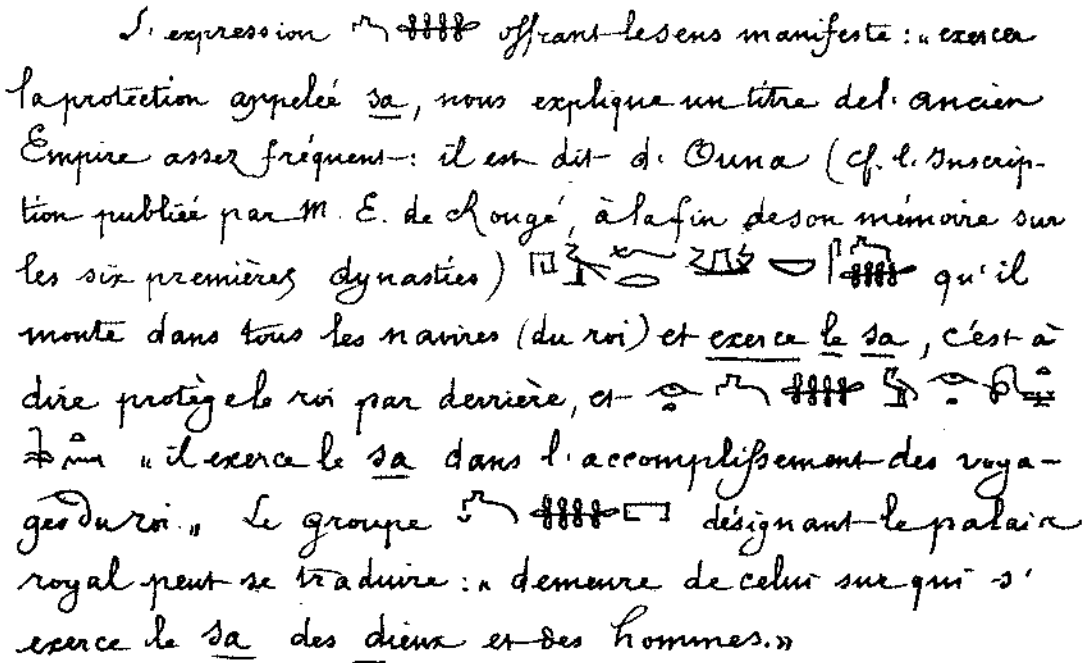 L'expression offrant le sens manifeste : „ exercer
la protection appelée sa, nous explique un titre de l'ancien
Empire assez fréquent : il est dit d'Ouna (cf. l'Inscrip-
tion publiée par M. E. de Rougé, à la fin de son mémoire sur
les six premières dynasties) qu'il
monte dans tous les navires (du roi) et exerce le sa, c'est à
dire protège le roi par derrière, et
„ il exerce le sa dans l'accomplissement des voya-
ges du roi. „ Le groupe désignant le palais
royal peut se traduire : „ demeure de celui sur qui s'
exerce le sa des dieux et des hommes. »